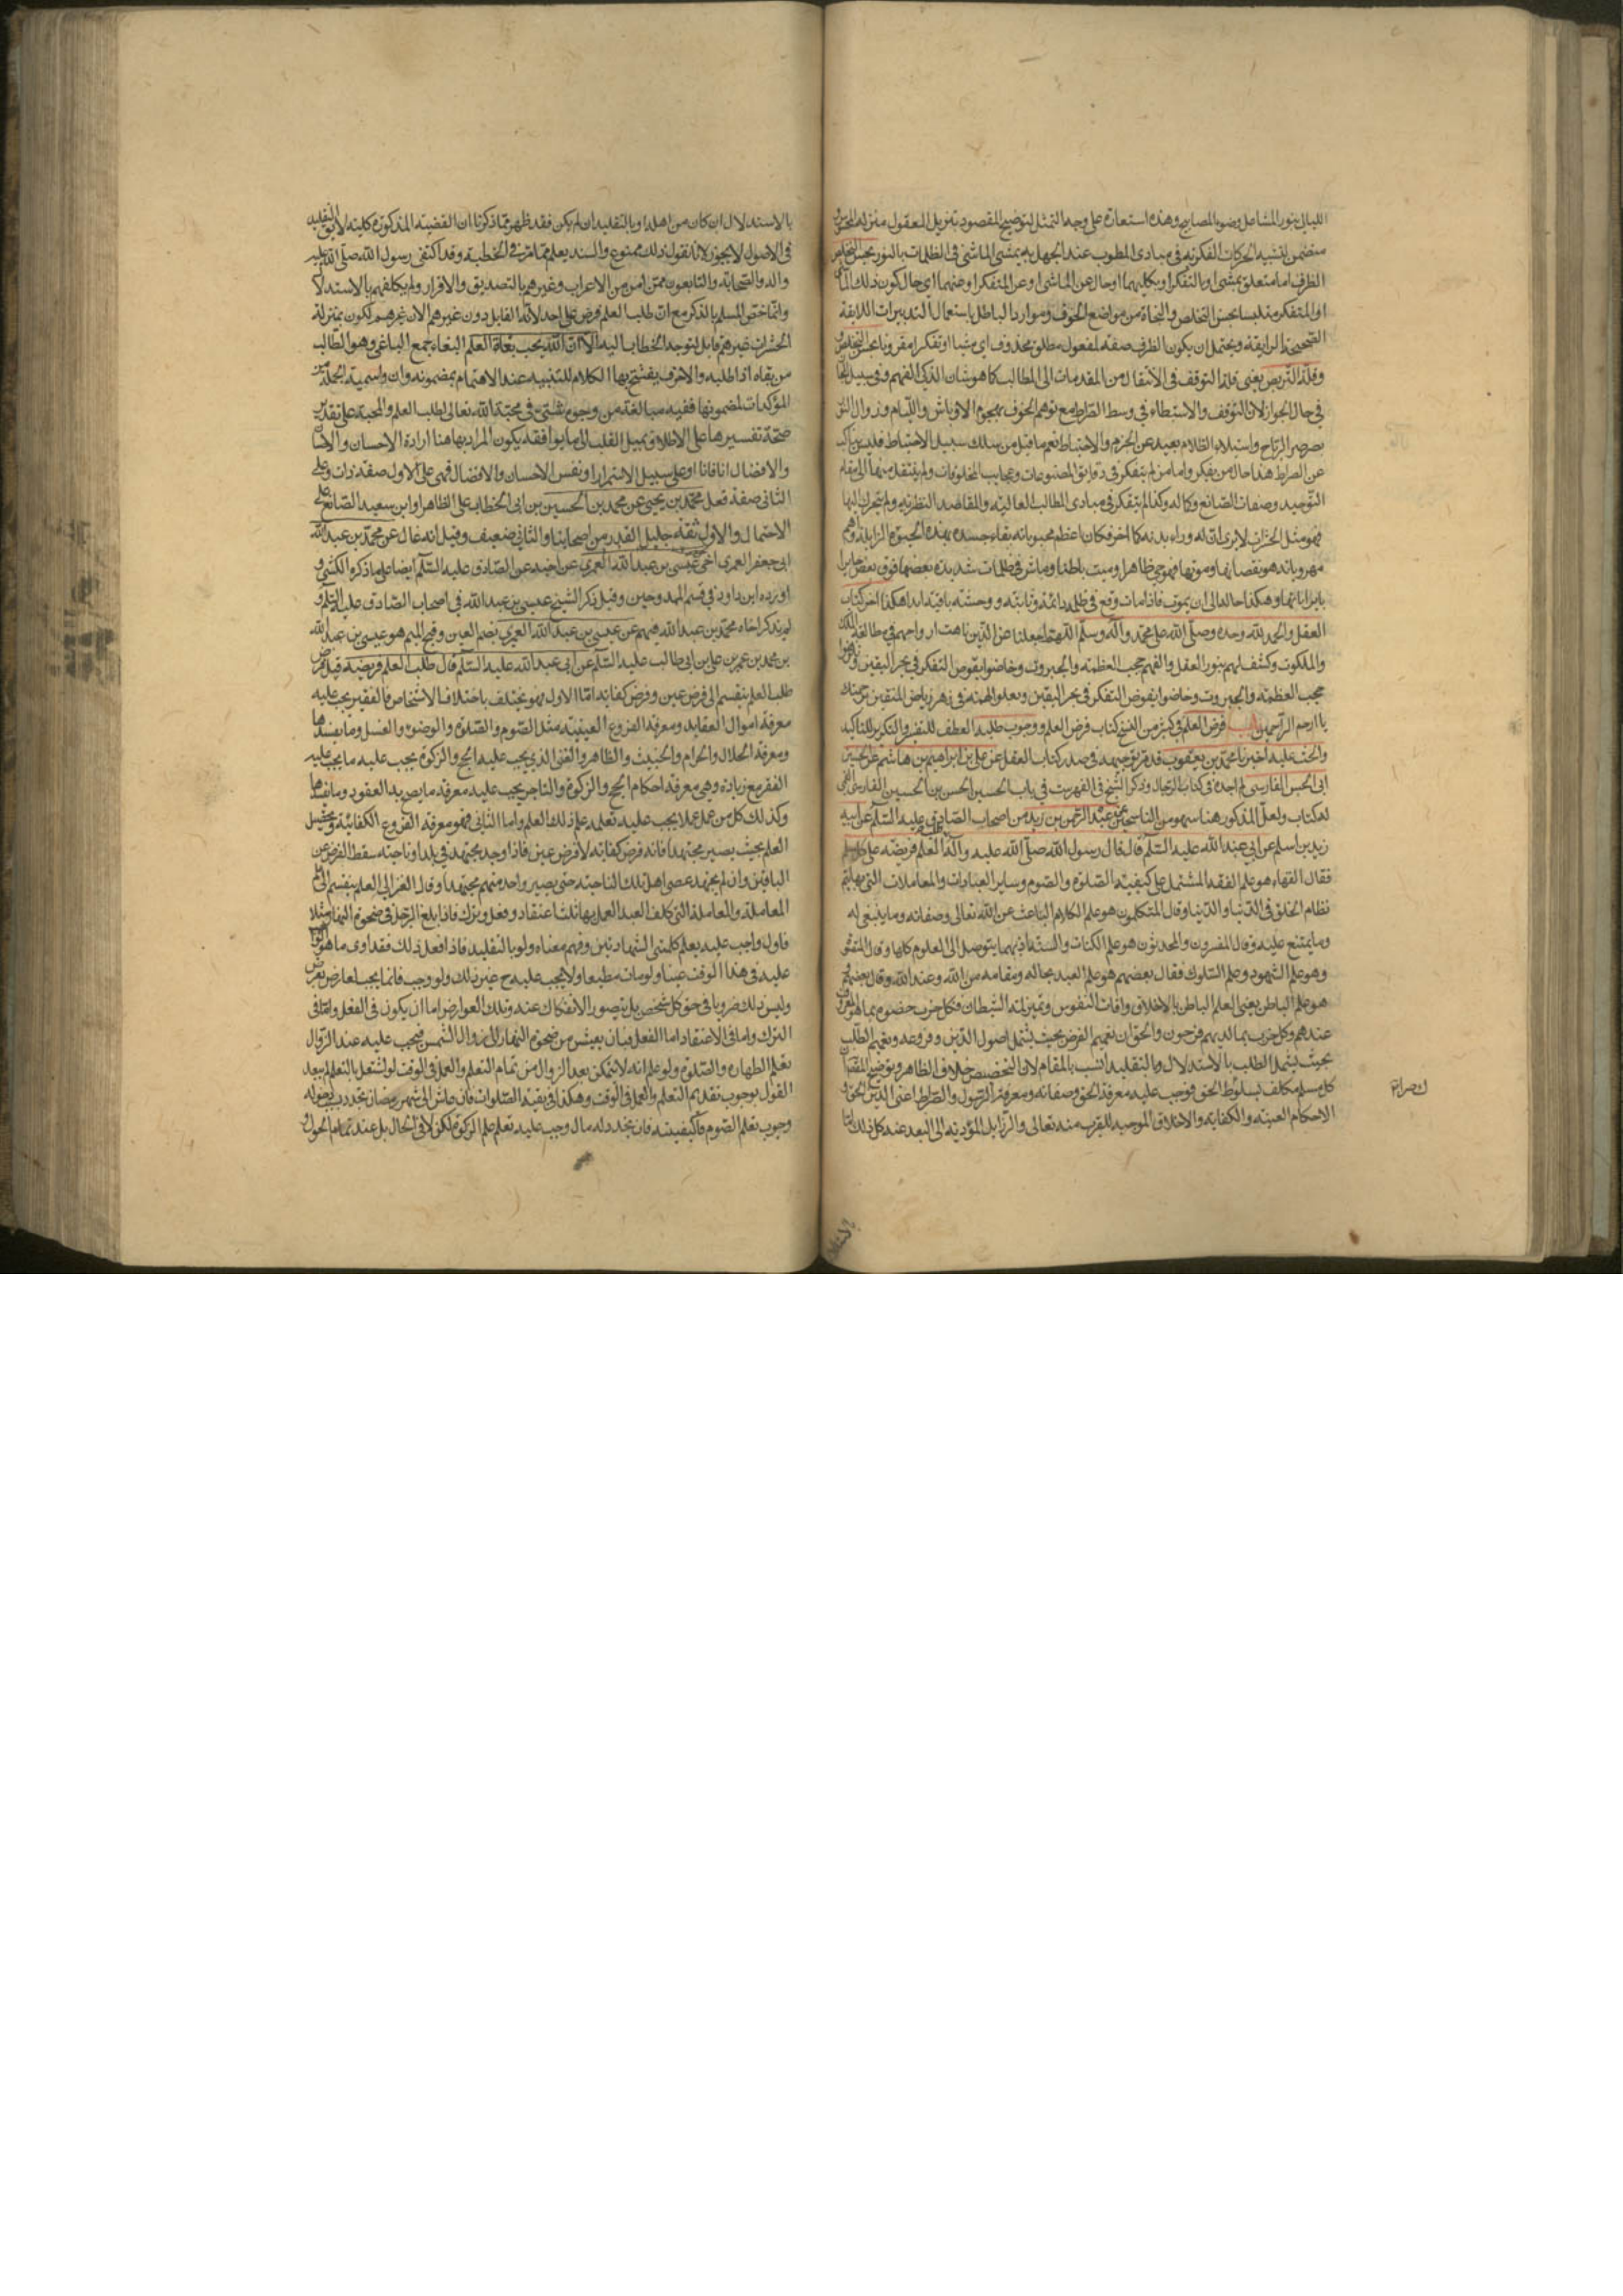 الليالى بنور المشاعل وضوء المصابيح وهذه استعارة على وجه التمثيل لتوضيح المقصود بتنزيل المعقول منزلة المحسوس
متضمن لتشبيه الحركات الفكرية فى مبادى المطلوب عند الجهل به بمشى الماشى فى الظلمات بالنور بحسن التخلص
الظرف اما متعلق بيمشى او بالتفكر او بكليهما او حال عن الماشى او عن المتفكر او عنهما اى حال كون ذلك الماشى
او المتفكر متلبسا بحسن التخلص والنجاة من مواضع الخوف وموارد الباطل باستعمال التدبيرات اللايقة
الصحيحة الرايقة ويحتمل ان يكون الظرف صفة لمفعول مطلق محذوف اى مشيا او تفكرا مقرونا بحسن التخلص
وقلة التربص يعنى قلة التوقف فى الانتقال من المقدمات الى المطالب كما هو شان الذكى الفهم وفى سبيل
فى حال الجواز لان التوقف والاستبطاء فى وسط الصراط مع توهم الخوف بهجوم الاوباش واللئام وزوال النور
بصرصر الرياح واستيلاء الظلام بعيد عن الحزم والاحتياط نعم ما قيل من سلك سبيل الاحتياط فليس بناكب
عن الصراط هذا حال من يفكر واما من لم يتفكر فى دقايق المصنوعات وعجايب المخلوقات ولم ينتقل منها الى مقام
التوحيد وصفات الصانع وكماله وكذا لم يتفكر فى مبادى المطالب العالية والمقاصد النظرية ولم يتحرك اليها
فهو مثل الحيوان لا يرى لذاته وراء بدنه كمالا اخر فكان اعظم محبوباته بقاء جسده بهذه الحيوة الزايلة واهم
مهروباته هو نقصانها وموتها فهو حى ظاهرا وميت باطنا وماش فى ظلمات شديدة بعضها فوق بعض
وهكذا حاله الى ان يموت فاذا مات وقع فى ظلمة دائمة وثابتة ووحشة باقية ابدا هكذا اخر كتاب
العقل والحمد لله وحده وصلى الله على محمد وآله وسلم اللهم اجعلنا من الذين ارواحهم فى مطالعة الملك
والملكوت وكشف لهم بنور العقل والفهم حجب العظمة والجبروت وخاضوا بقوص التفكر فى بحر اليقين
حجب العظمة والجبروت وخاضوا بغوص التفكر فى بحر اليقين ويعلو الهمة فى زهر رياض المتقين برحمتك
يا ارحم الراحمين باب فرض العلم فى كثير من النسخ كتاب فرض العلم ووجوب طلبه العطف للتفسير والتكرير للتاكيد
والحث عليه اخبرنا محمد بن يعقوب قد مر توجيهه فى صدر كتاب العقل عن على بن ابراهيم بن هاشم عن الحسن بن
ابى الحسين الفارسى لم اجده فى كتاب الرجال وذكر الشيخ فى الفهرست فى باب الحسين الحسن بن الحسين الفارسى
له كتاب ولعل المذكور هنا سهو من الناسخين عن عبد الرحمن بن زيد من اصحاب الصادق عليه السلم عن ابيه
زيد بن اسلم عن ابى عبد الله عليه السلم قال قال رسول الله صلى الله عليه وآله طلب العلم فريضة على كل مسلم
فقال الفقهاء هو علم الفقه المشتمل على كيفية الصلوة والصوم وساير العبادات والمعاملات التى بها يتم
نظام الخلق فى الدنيا والدنيا وقال المتكلمون هو علم الكلام الباعث عن الله تعالى وصفاته وما ينبغى له
وما يمتنع عليه وقال المفسرون والمحدثون هو علم الكتاب والسنة اذ بهما يتوصل الى العلوم كلها وقال المتصوفة
وهو علم الشهود وعلم السلوك فقال بعضهم هو علم العبد بحاله ومقامه من الله وعند الله وقال بعضهم
هو علم الباطن يعنى العلم الباطن بالاخلاق وافات النفوس وتميز لمة الشيطان فكل حزب خصوه بما هو المعروف
عندهم وكل حزب بما لديهم فرحون والحق ان تعميم الفرض بحيث يشتمل اصول الدين وفروعه وتعميم الطلب
بحيث يشمل الطلب بالاستدلال وبالتقليد انسب بالمقام لان التخصيص خلاف الظاهر وتوضيح المقصد ان
كل مسلم مكلف بسلوك صراط الحق فوجب عليه معرفة الحق وصفاته ومعرفة الرسول والصراط اعنى الدين الحق و
الاحكام العينية والكفاية والاخلاق الموجبة للقرب منه تعالى والرذايل المؤدية الى البعد عنه كل ذلك اما
ك صراط
بالاستدلال
بالاستدلال ان كان من اهله او بالتقليد ان لم يكن فقد ظهر مما ذكرنا ان القضية المذكورة كلية لا يق التقليد
فى الاصول لا يجوز لانا نقول ذلك ممنوع والسند يعلم مما مر فى الخطبة وقد اكتفى رسول الله صلى الله عليه
وآله والصحابة والتابعون ممن امن من الاعراب وغيرهم بالتصديق والاقرار ولم يكلفهم بالاستدلال
وانما اختص المسلم بالذكر مع ان طلب العلم فرض على كل احد لانه القابل دون غيرهم الان غيرهم لكون بمنزلة
الحشرات غير قابل لتوجه الخطاب اليه الا ان الله يحب بغاة العلم البغاة جمع الباغى وهو الطالب
من بغاه اذا طلبه والاحرف يفتتح بها الكلام للتنبيه عند الاهتمام بمضمونه وان واسمية الجملة من
المؤكدات لمضمونها ففيه مبالغة من وجوه شتى فى محبة الله تعالى لطلب العلم والمحبة على تقدير
صحة تفسيرها على الاطلاق بميل القلب الى ما يوافقه يكون المراد بها هنا ارادة الاحسان
والافضال انا فانا او على سبيل الاستمرار او نفس الاحسان والافضال فهى على الاول صفة ذات وعلى
الثانى صفة فعل محمد بن يحيى عن محمد بن الحسين بن ابى الخطاب على الظاهر او ابن سعيد الصائغ على
الاحتمال والاول ثقة جليل القدر من اصحابنا والثانى ضعيف وقيل انه غال عن محمد بن عبد الله
ابى جعفر العمرى اخى عيسى بن عبد الله العمرى عن اخيه عن الصادق عليه السلم ايضا على ما ذكره الكشى و
اورده ابن داود فى قسم الممدوحين وقيل ذكر الشيخ عيسى بن عبد الله فى اصحاب الصادق عليه السلم و
لم يذكر اخاه محمد بن عبد الله فيهم عن عيسى بن عبد الله العمرى بضم العين وفتح الميم هو عيسى بن عبد الله
بن محمد بن عمر بن على بن ابى طالب عليه السلم عن ابى عبد الله عليه السلم قال طلب العلم فريضة قيل فرض
طلب العلم ينقسم الى فرض عين وفرض كفاية اما الاول فهو يختلف باختلاف الاشخاص فالفقير يجب عليه
معرفة اصول العقايد ومعرفة الفروع العينية مثل الصوم والصلوة والوضوء والغسل وما يفسدها
ومعرفة الحلال والحرام والخبيث والطاهر والغنى الذى يجب عليه الحج والزكوة يجب عليه ما يجب على
الفقير مع زيادة وهى معرفة احكام الحج والزكوة والتاجر يجب عليه معرفة ما يصح به العقود وما يفسدها
وكذلك كل من عمل عملا يجب عليه تعلمه علم ذلك العلم واما الثانى فهو معرفة الفروع الكفائية وتحصيل
العلم بحيث يصير مجتهدا فانه فرض كفاية لا فرض عين فاذا وجد مجتهد فى بلد او ناحية سقط الفرض عن
الباقين وان لم يجتهد عصى اهل تلك الناحية حتى يصير واحد منهم مجتهدا وقال الغزالى العلم ينقسم الى علم
المعاملة والمعاملة التى كلف العبد العمل بها ثلث اعتقاد وفعل وترك فاذا بلغ الرجل فى ضحوة النهار مثلا
فاول واجب عليه يعلم كلمتى الشهادتين وفهم معناه ولو بالتقليد فاذا فعل ذلك فقد ادى ما هو الواجب
عليه فى هذا الوقت عينا ولو مات مات مطيعا ولا يجب عليه ح غير ذلك ولو وجب فانما يجب لعارض يعرض
وليس ذلك ضروريا فى حق كل شخص بل يتصور الانفكاك عنه وتلك العوارض اما ان يكون فى الفعل واما فى
الترك واما فى الاعتقاد اما الفعل فبان يعيش من ضحوة النهار الى زوال الشمس فيجب عليه عند الزوال
تعلم الطهارة والصلوة ولو علم انه لا يتمكن بعد الزوال من تمام التعلم والعمل فى الوقت لو اشتغل بالتعلم لم يبعد
القول بوجوب تقديم التعلم والعمل فى الوقت وهكذا فى بقية الصلوات فان عاش الى شهر رمضان تجدد بدخوله
وجوب تعلم الصوم وكيفيته فان تجدد له مال وجب عليه تعلم علم الزكوة لكن لا فى الحال بل عند تمام الحول